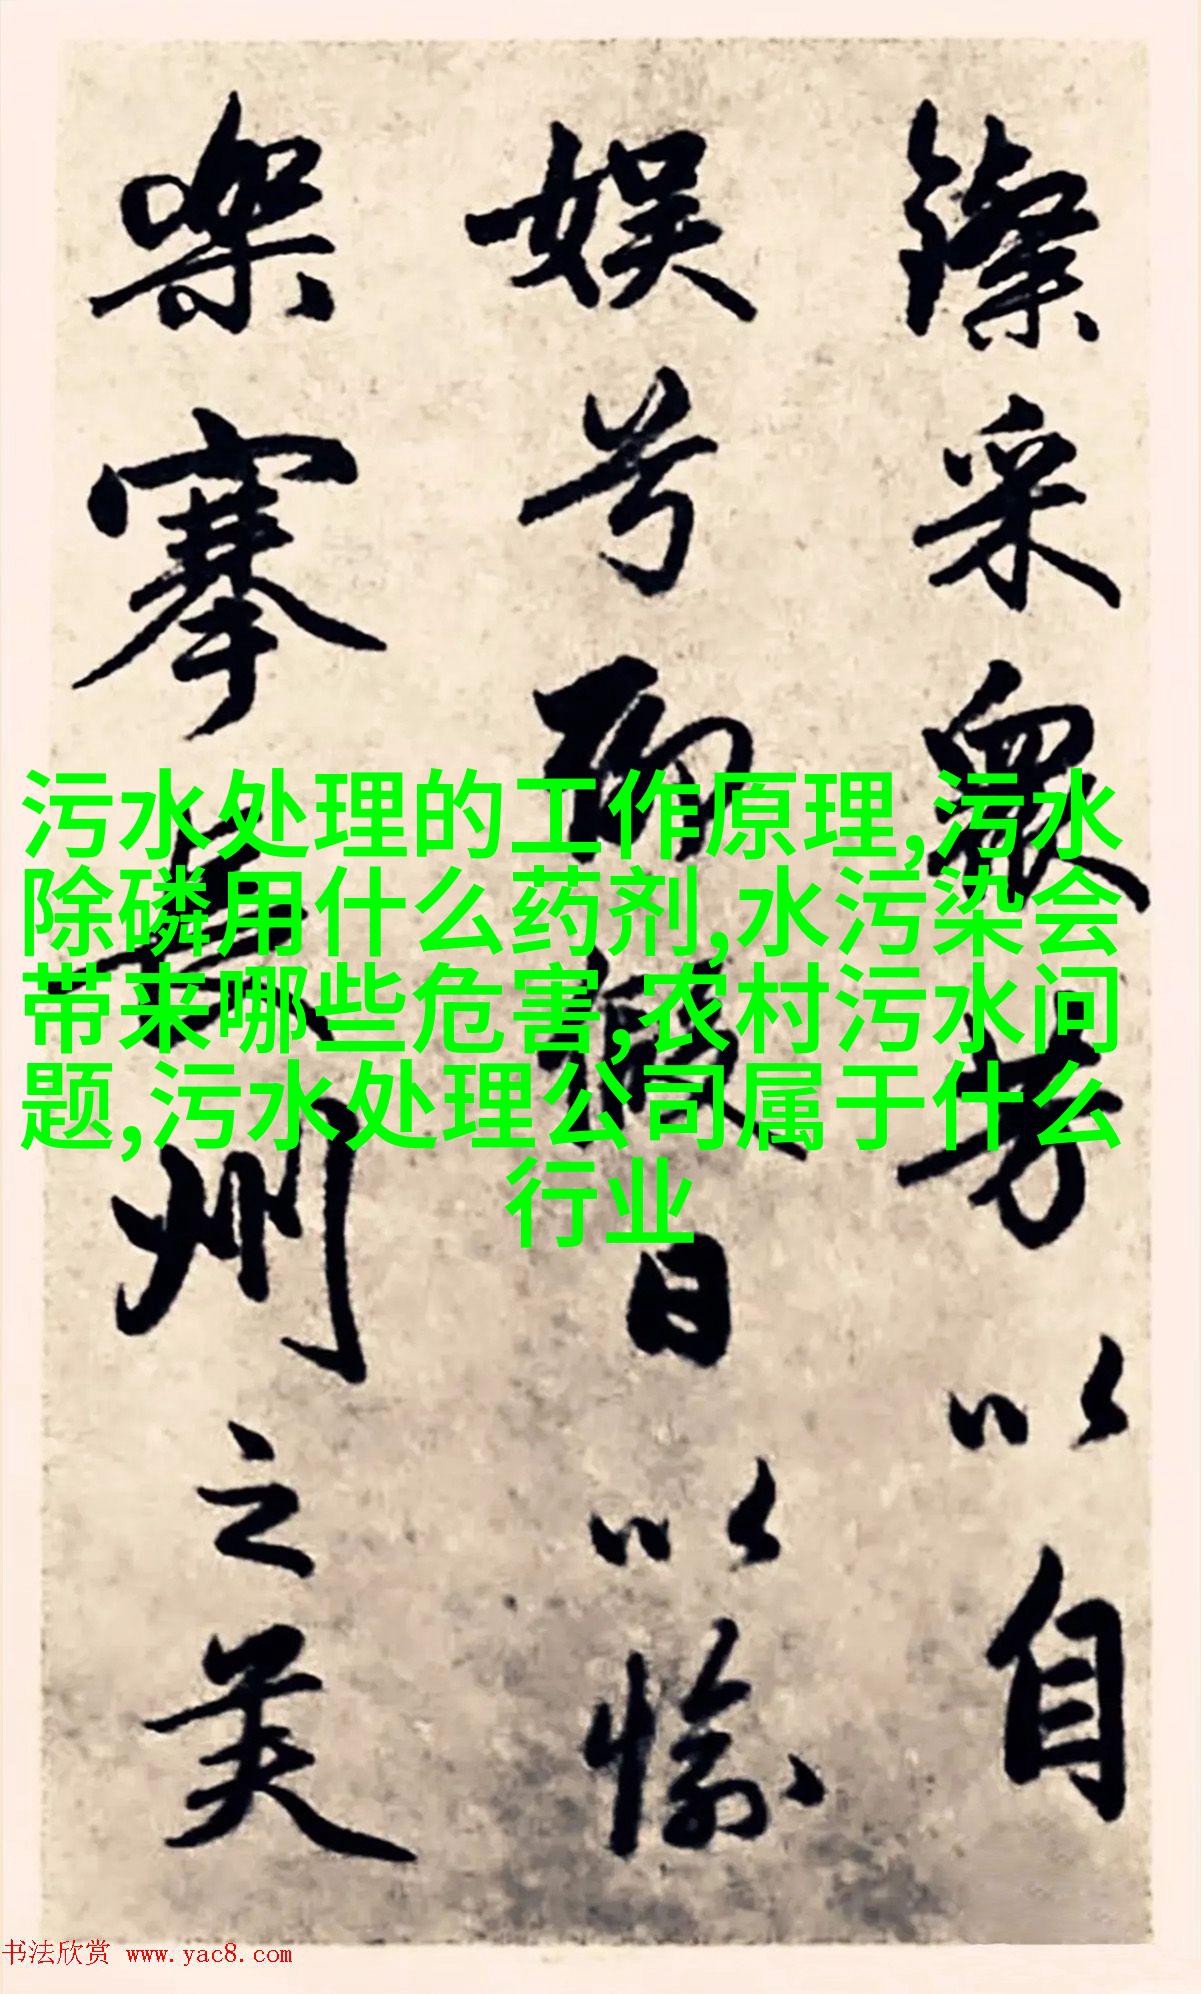 鑗采眾芳以自
娱兮聊假日以愉
樂搴長洲之美
污水处理的工作原理,污水
除磷用什么药剂,水污染会
带来哪些危害,农村污水问
题,污水处理公司属于什么
行业
书法欣赏 www.yac8.com